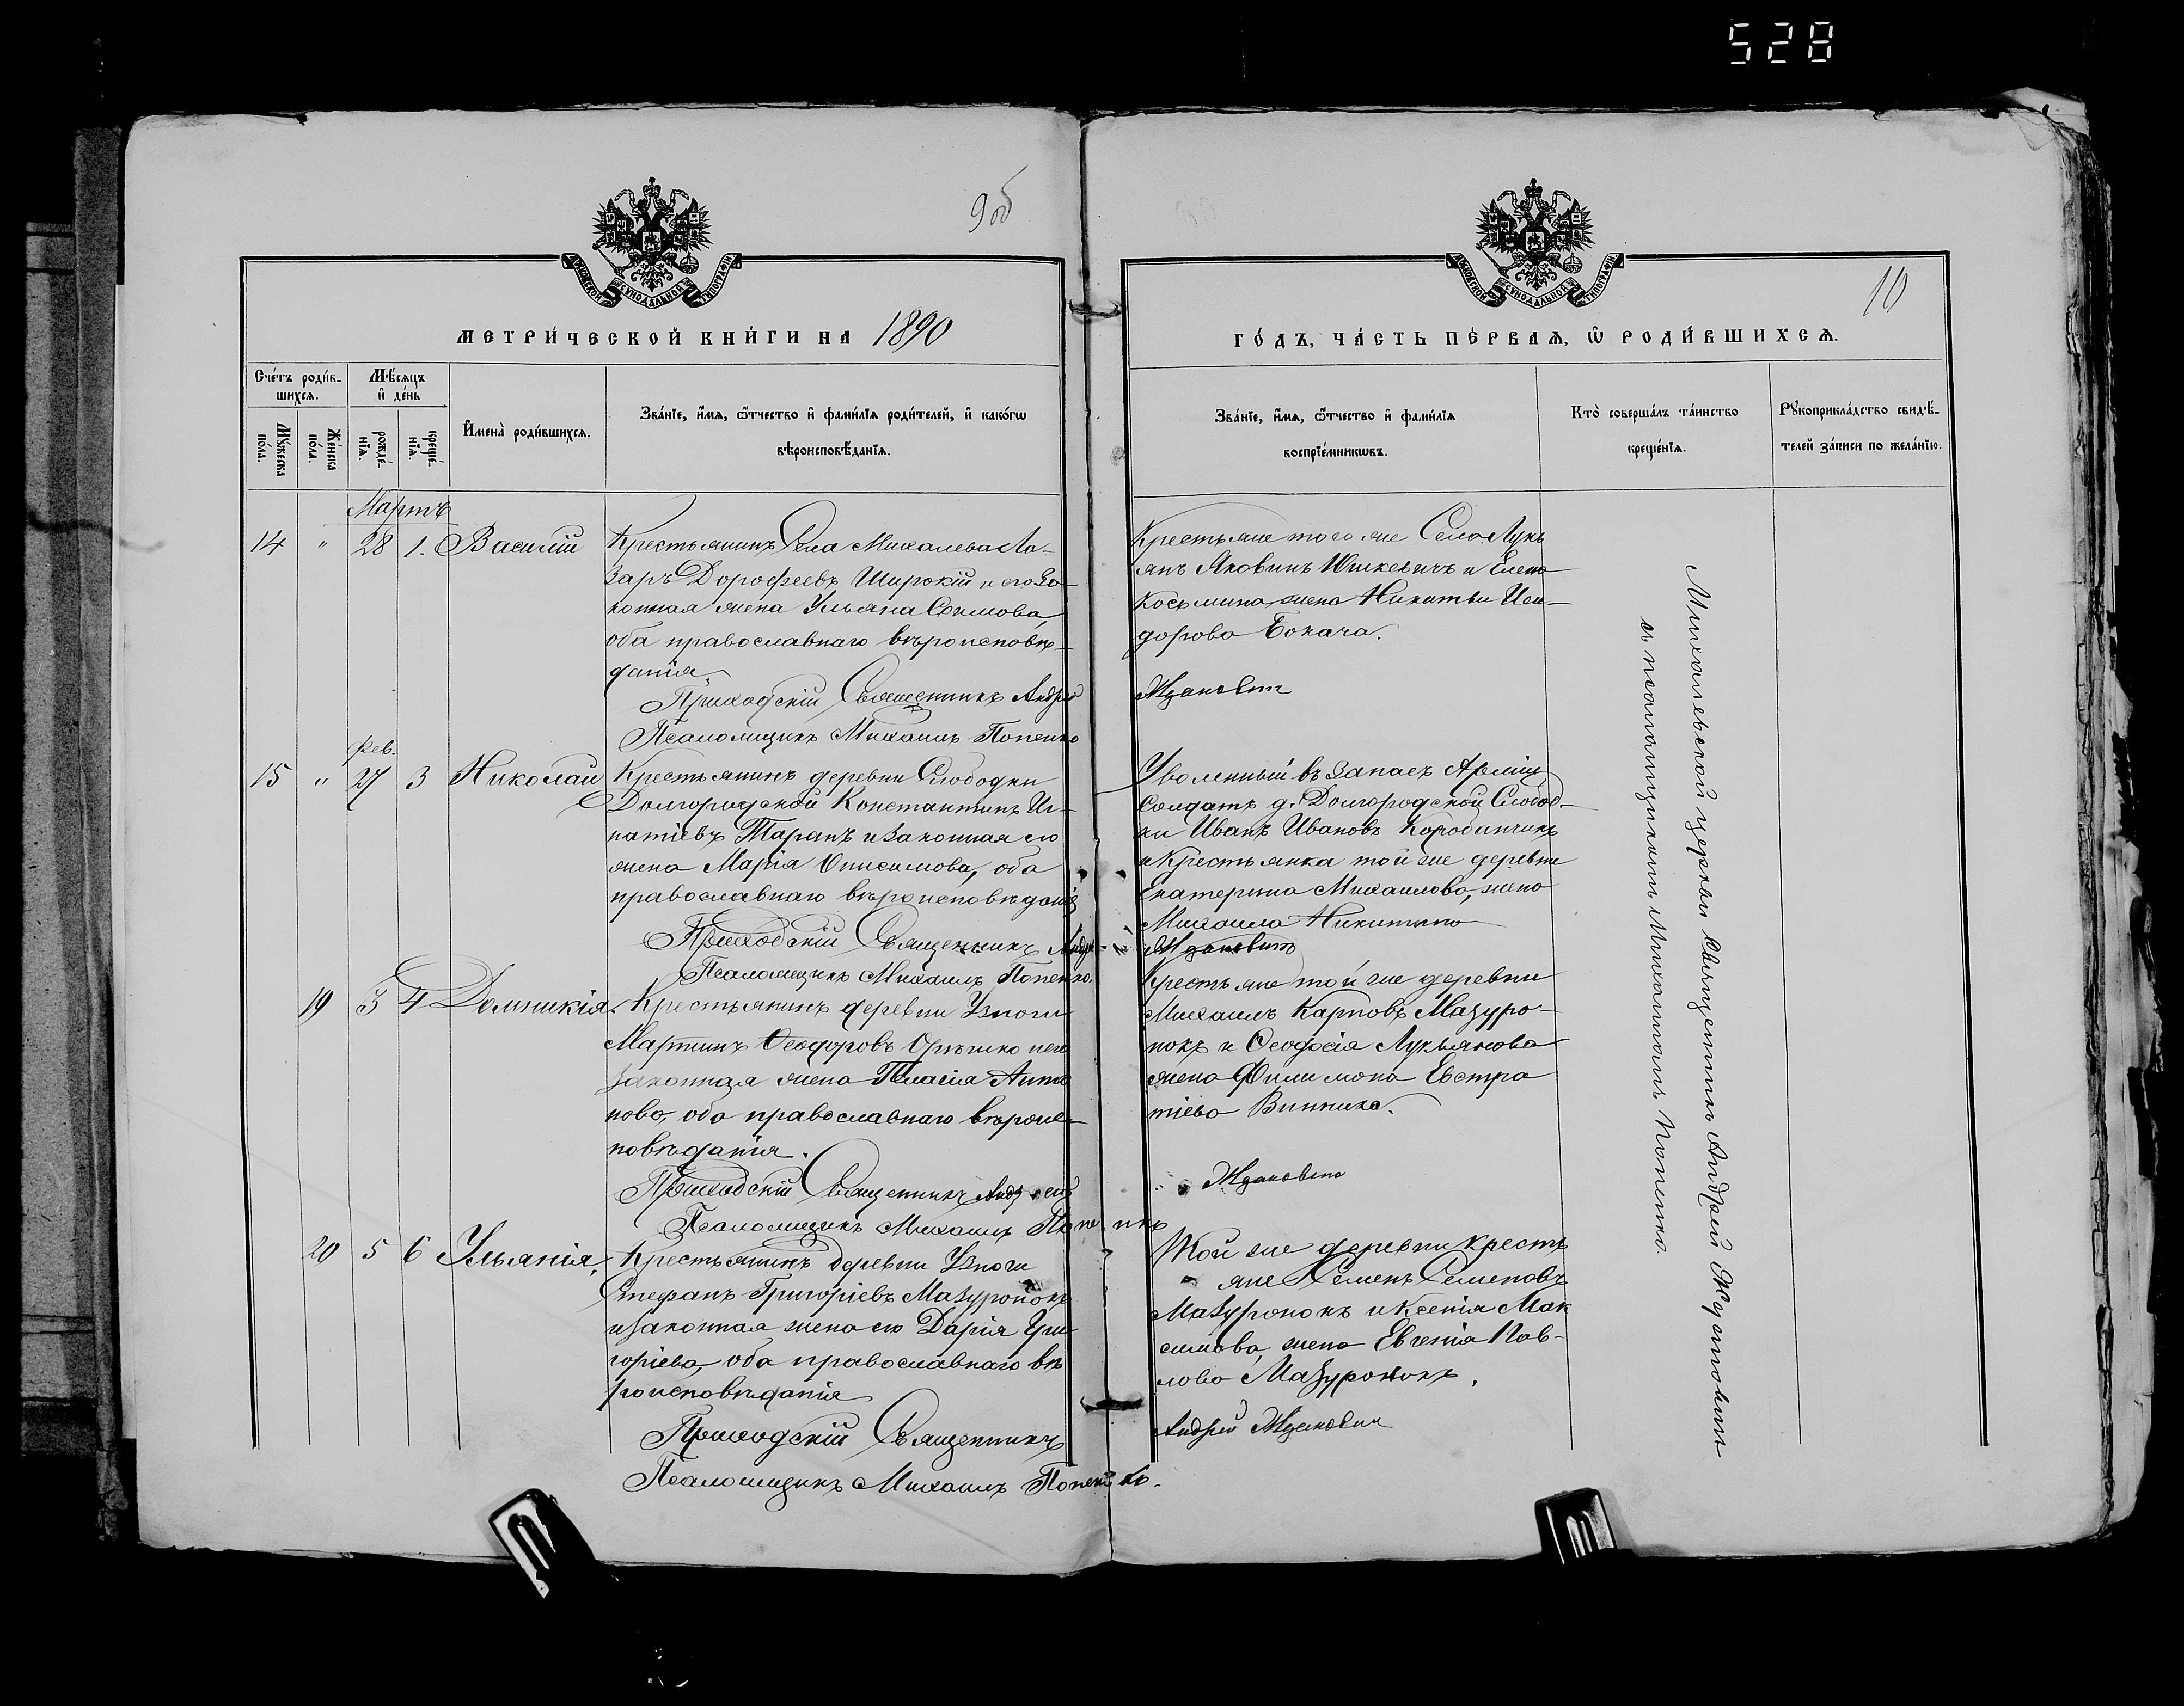 528
9об
МОСКОВСКОЙ СѴНОДАЛЬНОЙ ТИПОГРАФІИ
МЕТРИ́ЧЕСКОЙ КНИ́ГИ НА 1890
Сче́тъ роди́в-
шихсѧ.
Мѣ́сѧцъ
и҆ де́нь
Мꙋ́жеска по́ла.
Же́нска по́ла.
рожде́-
нїѧ.
креще́-
нїѧ.
И҆мена̀ роди́вшихсѧ.
Зва́нїе, и҆́мѧ, ѻ҆́тчество и҆ фами́лїѧ роди́телей, и҆ како́гѡ
вѣроисповѣ́данїѧ.
Мартъ
14 " 28 1. Василій
Крестьянинъ Села Михалева Ла-
заръ Дорофеевъ Широкій и его за-
конная жена Ульяна Симова,
оба православнаго вѣроисповѣ-
данія.
Приходскій Священникъ Андрей
Псаломщикъ Михаилъ Попенко
Фев.
15 " 27 3 Николай
Крестьянинъ деревни Слободки
Долгородской Константинъ Иг-
натіевъ Таранъ и законная его
жена Марія Онисимова, оба
православнаго вѣроисповѣданія
Приходскій Священникъ Андрей
Псаломщикъ Михаилъ Попенко.
19 3 4 Домникія.
Крестьянинъ деревни Узноги
Мартинъ Ѳеодоровъ и его
законная жена Пелагія Анто
нова, оба православнаго вѣроис-
повѣданія.
Приходскій Священникъ Андрей
Псаломщикъ Михаилъ Попенко
20 5 6 Ульянія.
Крестьянинъ деревни Узноги
Стефанъ Григоріевъ Мазуронокъ
и законная жена его Дарія Гри-
горіева, оба православнаго вѣ
роисповѣданія
Приходскій Священникъ
Псаломщикъ Михаилъ Попенко.
МОСКОВСКОЙ СѴНОДАЛЬНОЙ ТИПОГРАФІИ
10
ГО́ДЪ, ЧА́СТЬ ПЕ́РВАѦ, Ѡ҆ РОДИ́ВШИХСѦ.
Зва́нїе, и҆́мѧ, ѻ҆́тчество и҆ фами́лїѧ
воспрїе́мникѡвъ.
Кто̀ соверша́лъ та́инство
креще́нїѧ.
Рꙋкоприкла́дство свидѣ́-
телей за́писи по жела́нїю.
Крестьяне того же Села Лукь
янъ Яковинъ Юшкевичъ и Елена
Косьмина, жена Никиты Иси-
дорова Бокача.
Жданович
Уволенный въ запасъ Арміи
Солдатъ д. Долгородской Слобод-
ки Иванъ Ивановъ Коробанчикъ
и Крестьянка той же деревни
Екатерина Михаилова, жена
Михаила Никитина
Жданович
Крестьяне той же деревни
Михаилъ Карповъ Мазуро-
нокъ и Ѳеодосія Лукьянова
жена Филимона Евстра
тіева Винника.
Жданович
Той же деревни кресть
яне Семенъ Семеновъ
Мазуронокъ и Ксенія Мак
симова, жена Евгенія Пав-
лова Мазуронокъ.
Андрей Жданович
Михалевской церкви Священникъ Андрей Жданович
съ псаломщикомъ Михаиломъ Попенко